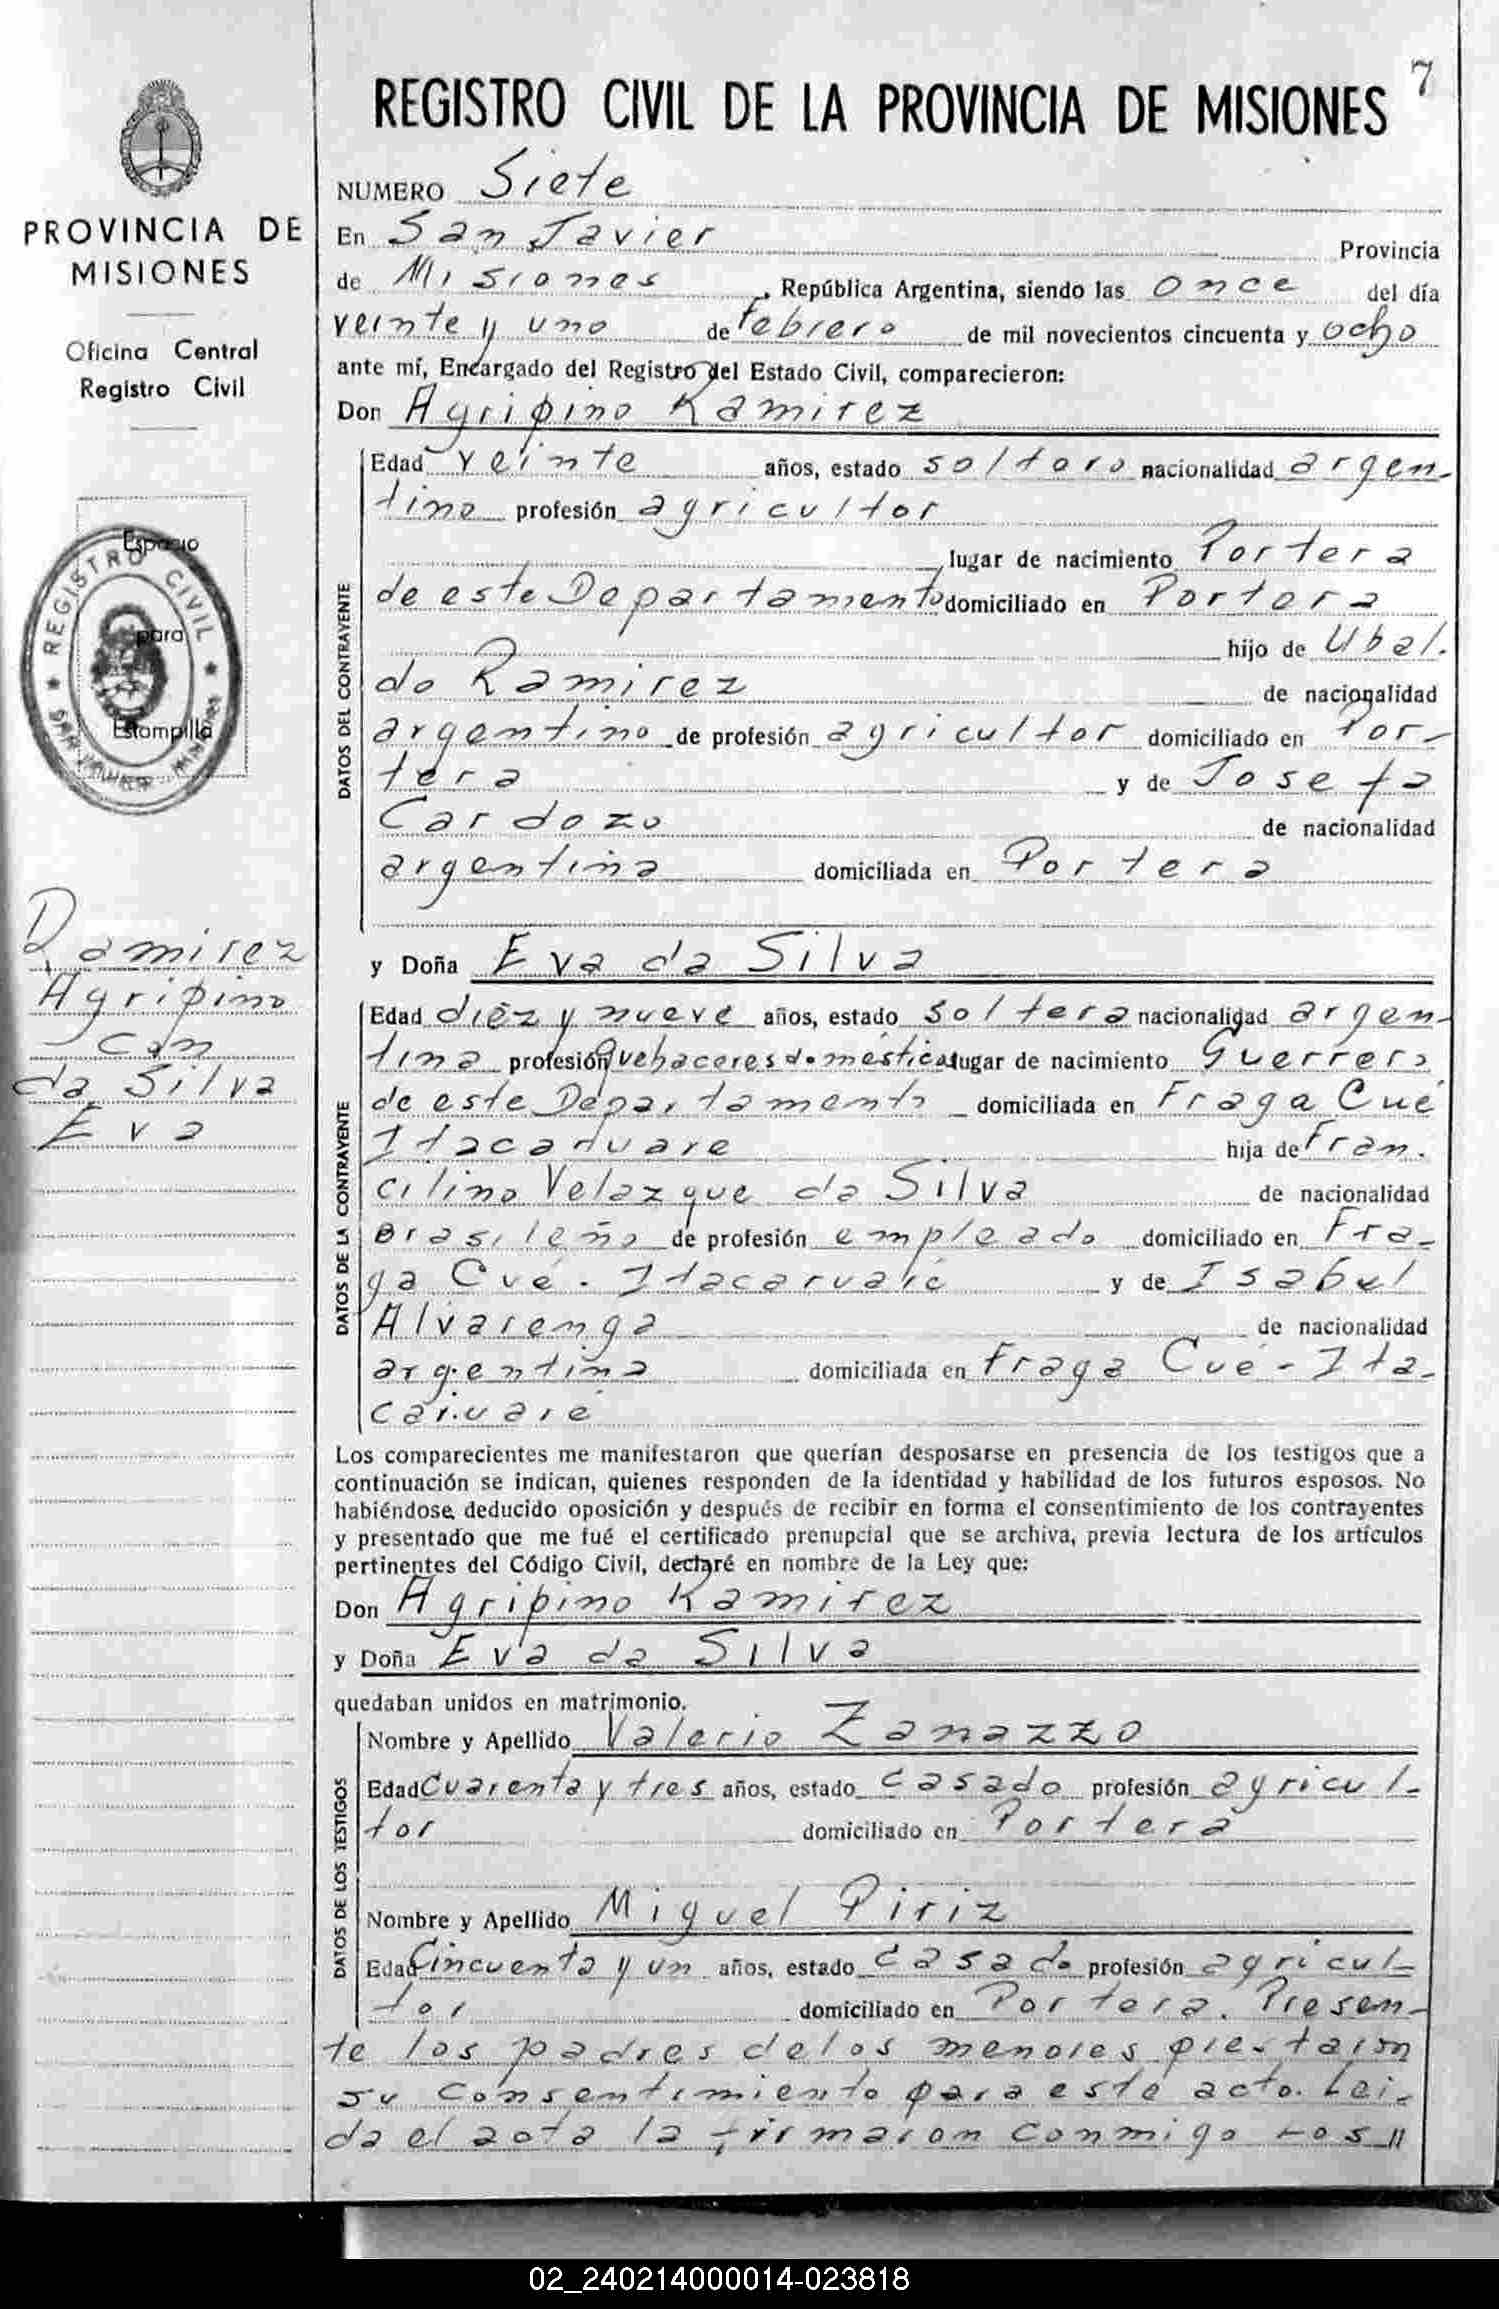 7
REGISTRO CIVIL DE LA PROVINCIA DE MISIONES
PROVINCIA DE
MISIONES
Oficina Central
Registro Civil
Espacio
para
Estampilla
REGISTRO CIVIL
SAN JAVIER
Ramirez
Agripino
con
da Silva
Eva
NUMERO Siete
En San Javier Provincia
de Misiones, República Argentina, siendo las once del día
veinte y uno de Febrero de mil novecientos cincuenta y ocho
ante mí, Encargado del Registro del Estado Civil, comparecieron:
Don Agripino Ramirez
DATOS DEL CONTRAYENTE
Edad veinte años, estado soltero nacionalidad argen-
tino profesión agricultor
lugar de nacimiento Portera
de este Departamento domiciliado en Portera
hijo de Ubal.
do Ramirez de nacionalidad
argentino de profesión agricultor domiciliado en Por-
tera y de Josefa
Cardozo de nacionalidad
argentina domiciliada en Portera
y Doña Eva da Silva
DATOS DE LA CONTRAYENTE
Edad diéz y nueve años, estado soltera nacionalidad argen-
tina profesión Quehaceres domésticos lugar de nacimiento Guerrero
de este Departamento domiciliada en Fraga Cué
Itacaruare hija de Fran.
cilino Velazque da Silva de nacionalidad
Brasileño de profesión empleado domiciliado en Fra-
ga Cué - Itacaruaré y de Isabel
Alvarenga de nacionalidad
argentina domiciliada en Fraga Cué - Ita-
caruaré
Los comparecientes me manifestaron que querían desposarse en presencia de los testigos que a
continuación se indican, quienes responden de la identidad y habilidad de los futuros esposos. No
habiéndose deducido oposición y después de recibir en forma el consentimiento de los contrayentes
y presentado que me fué el certificado prenupcial que se archiva, previa lectura de los artículos
pertinentes del Código Civil, declaré en nombre de la Ley que:
Don Agripino Ramirez
y Doña Eva da Silva
quedaban unidos en matrimonio.
DATOS DE LOS TESTIGOS
Nombre y Apellido Valerio Zanazzo
Edad Cuarenta y tres años, estado casado profesión agricul-
tor domiciliado en Portera
Nombre y Apellido Miguel Piriz
Edad Cincuenta y un años, estado casado profesión agricul-
tor domiciliado en Portera. Presen-
te los padres de los menores prestaron
su consentimiento para este acto. Lei-
da el acta la firmaron conmigo Los //
02_240214000014-023818